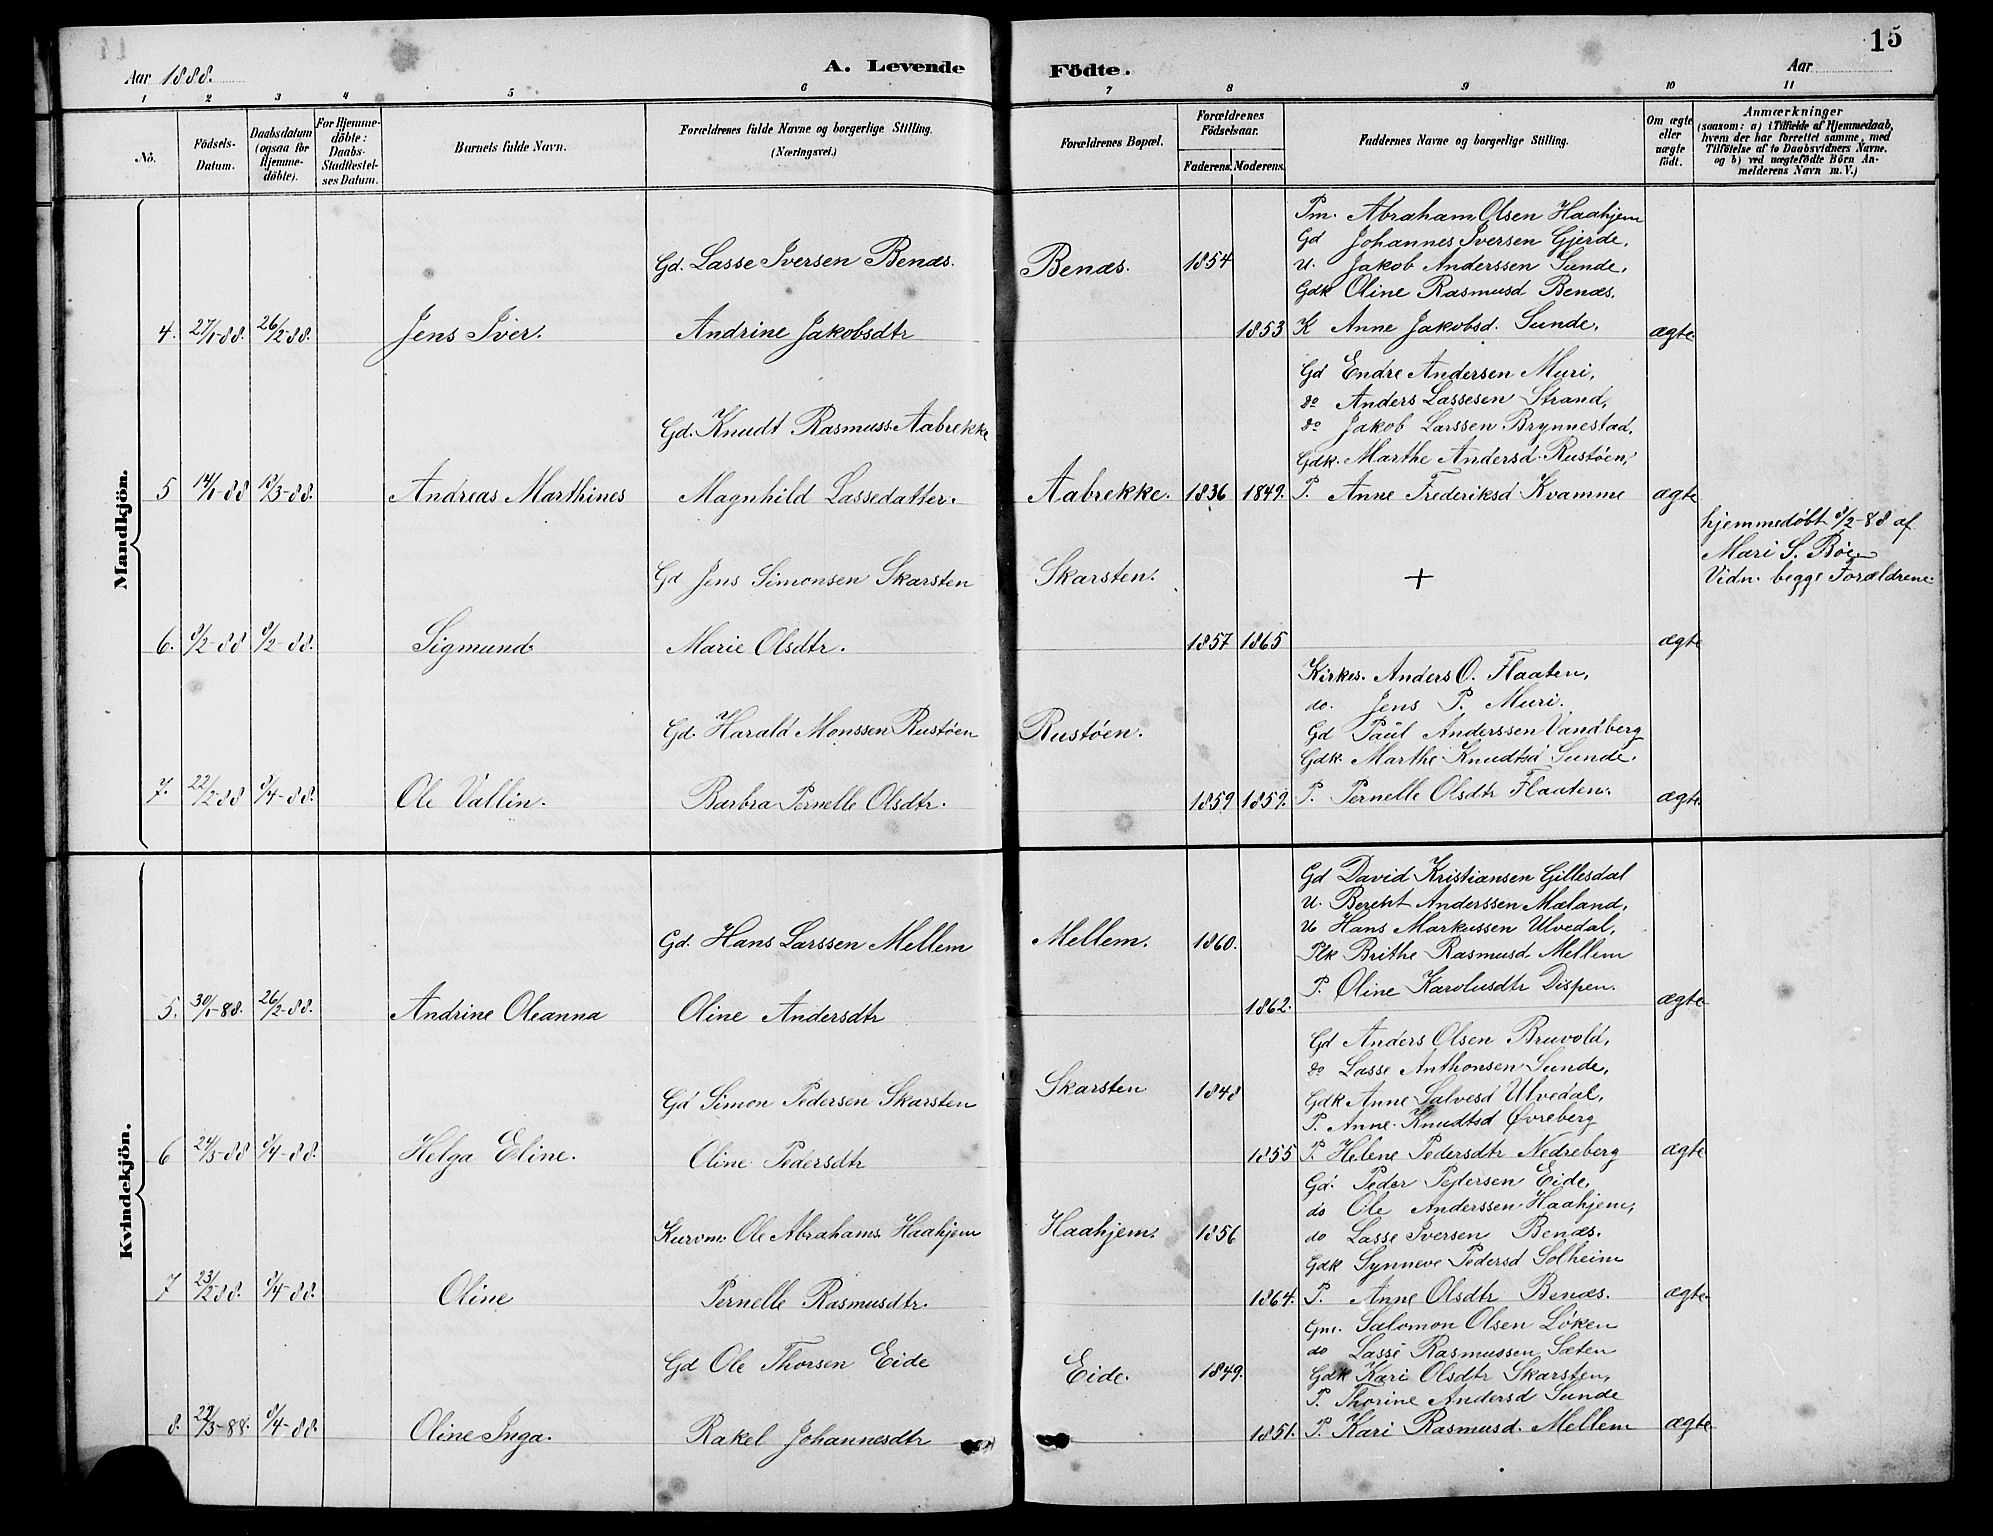 15
Aar 1888.
A. Levende Födte.
Aar
1 2 3 4 5 6 7 8 9 10 11
No.
Födsels-Datum.
Daabsdatum (ogsaa for Hjemme-döbte).
For Hjemme-döbte: Daabs-Stadfæstel-ses Datum.
Barnets fulde Navn.
Forældrenes fulde Navne og borgerlige Stilling. (Næringsvei.)
Forældrenes Bopæl.
Forældrenes Födselsaar.
Faderens. Moderens.
Faddernes Navne og borgerlige Stilling.
Om ægte eller uægte födt.
Anmærkninger
(saasom: a) i Tilfælde af Hjemmedaab, hvem der har forrettet samme, med Tilföielse af to Daabsvidners Navne, og b) ved uægtefödte Börn An-melderens Navn m. V.)
Mandkjön.
Pm. Abraham Olsen Haahjem
Gd Johannes Iversen Gjerde,
Gd. Lasse Iversen Benæs. Benæs. 1854
U. Jakob Anderssen Sunde,
Gdk Oline Rasmusd Benæs.
4. 27/1-88. 26/2-88. Jens Iver. Andrine Jakobsdtr 1853 K Anne Jakobsd. Sunde, ægte
Gd Endre Andersen Muri,
do Anders Lassesen Strand,
Gd. Knudt Rasmuss. Aabrekke
do Jakob Larssen Brynnestad.
Gdk. Marthe Andersd Rustöen,
5 14/1-88 18/3-88. Andreas Marthines Magnhild Lassedatter. Aabrekke. 1836 1849. P. Anne Frederiksd Kvamme ægte
hjemmedöbt 8/2-88 af
Mari S. Böe.
Gd Jens Simonsen Skarsten Skarsten. + Vidn. begge Forældrene.
6. 8/2-88 8/2-88. Sigmund. Marie Olsdtr. 1857 1865 ægte
Kirkes. Anders O. Flaaten,
do. Jens P. Muri.
Gd. Harald Monssen Rustöen Rustöen. Gd Paul Anderssen Vandberg
Gdk. Marthe Knudtsd Sunde.
7. 22/2-88 8/4-88. Ole Vallin. Barbra Pernelle Olsdtr. 1859 1859. P. Pernelle Olsdtr Flaaten. ægte.
Kvindekjön.
Gd David Kristiansen Gillesdal
U. Berent Anderssen Mæland,
U Hans Markussen Ulvedal,
Gd. Hans Larssen Mellem Mellem. 1860.
Plk Brithe Rasmusd Mellem
P. Oline Karolusdtr Dispen.
5. 30/1-88. 26/2-88. Andrine Oleanna Oline Andersdtr 1862. ægte
Gd Anders Olsen Bruvold,
do Lasse Anthonsen Sunde,
Gd Simon Pedersen Skarsten Skarsten 1848 Gdk Anne Salvesd Ulvedal,
P. Anne Knudtsd Øvreberg
6 24/3-88 8/4-88. Helga Eline. Oline Pedersdtr 1855 P. Helene Pedersdtr Nedreberg ægte
Gd. Peder Pedersen Eide,
do Ole Anderssen Haahjem,
Kurvm. Ole Abrahams. Haahjem Haahjem. 1856 do Lasse Iversen Benæs.
Gdk Synneve Pedersd Solheim
7 23/2-88. 8/4-88. Oline Pernelle Rasmusdtr. 1864. P. Anne Olsdtr Benæs. ægte.
Gm. Salomon Olsen Löken
do Lasse Rasmussen Sæten
Gd Ole Thorsen Eide Eide. 1849. Gdk Kari Olsdtr Skarsten,
P. Thorine Andersd Sunde
8. 22/3-88. 8/4-88. Oline Inga. Rakel Johannesdtr 1851. P. Kari Rasmusd. Mellem ægte